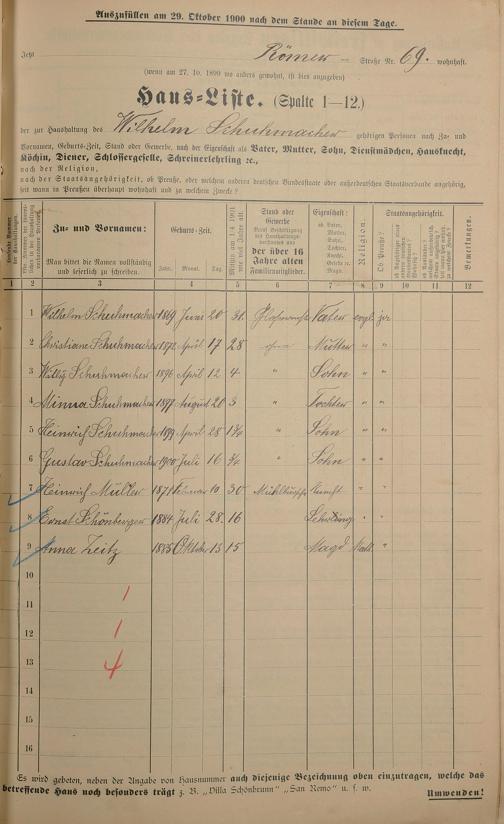 Auszufüllen am 29. Oktober 1900 nach dem Stande an diesem Tage.
Jetzt Römer — Straße Nr. 69. wohnhaft.
(wenn am 27. 10. 1899 wo anders gewohnt, ist dies anzugeben)
Haus-Liste. (Spalte 1—12.)
der zur Haushaltung des Wilhelm Schuhmacher gehörigen Personen nach Zu- und
Vornamen, Geburts-Zeit, Stand oder Gewerbe, nach der Eigenschaft als Vater, Mutter, Sohn, Dienstmädchen, Hausknecht,
Köchin, Diener, Schlossergeselle, Schreinerlehrling ꝛc.,
nach der Religion,
nach der Staatsangehörigkeit, ob Preuße, oder welchem anderen deutschen Bundesstaate oder außerdeutschen Staatsverbande angehörig,
seit wann in Preußen überhaupt wohnhaft und zu welchem Zwecke?
Zu- und Vornamen:
Man bittet die Namen vollständig und leserlich zu schreiben.
Geburts-Zeit.
Jahr. Monat. Tag.
Mithin am 1/4 1901 wie viel Jahre alt.
Stand oder Gewerbe
der über 16 Jahre alten Familienmitglieder.
Eigenschaft:
ob Vater, Mutter, Sohn, Tochter, Knecht, Geselle o. Magd.
Religion.
Staatsangehörigkeit.
Ob Preuße?
Bemerkungen.
1 2 3 4 5 6 7 8 9 10 11 12
1 Wilhelm Schuhmacher 1869 Juni 20 31 Vater evgl. ja
2 Christiane Schuhmacher 1872 April 17 28 ohne Mutter " "
3 Willy Schuhmacher 1896 April 12 4 " Sohn " "
4 Minna Schuhmacher 1897 August 20 3 " Tochter " "
5 Heinrich Schuhmacher 1899 April 28 " Sohn " "
6 Gustav Schuhmacher 1900 Juli 16 " Sohn " "
7 Heinrich Müller 1871 Februar 10 30 Knecht " "
8 Ernst Schönberger 1884 Juli 28. 16 Lehrling " "
9 Anna Zeitz 1885 Oktober 15 15 Magd Kath. "
10
11
12
13
14
15
16
1
1
4
Es wird gebeten, neben der Angabe von Hausnummer auch diejenige Bezeichnung oben einzutragen, welche das
betreffende Haus noch besonders trägt z. B. „Villa Schönbrunn" „San Remo" u. s. w.
Umwenden!